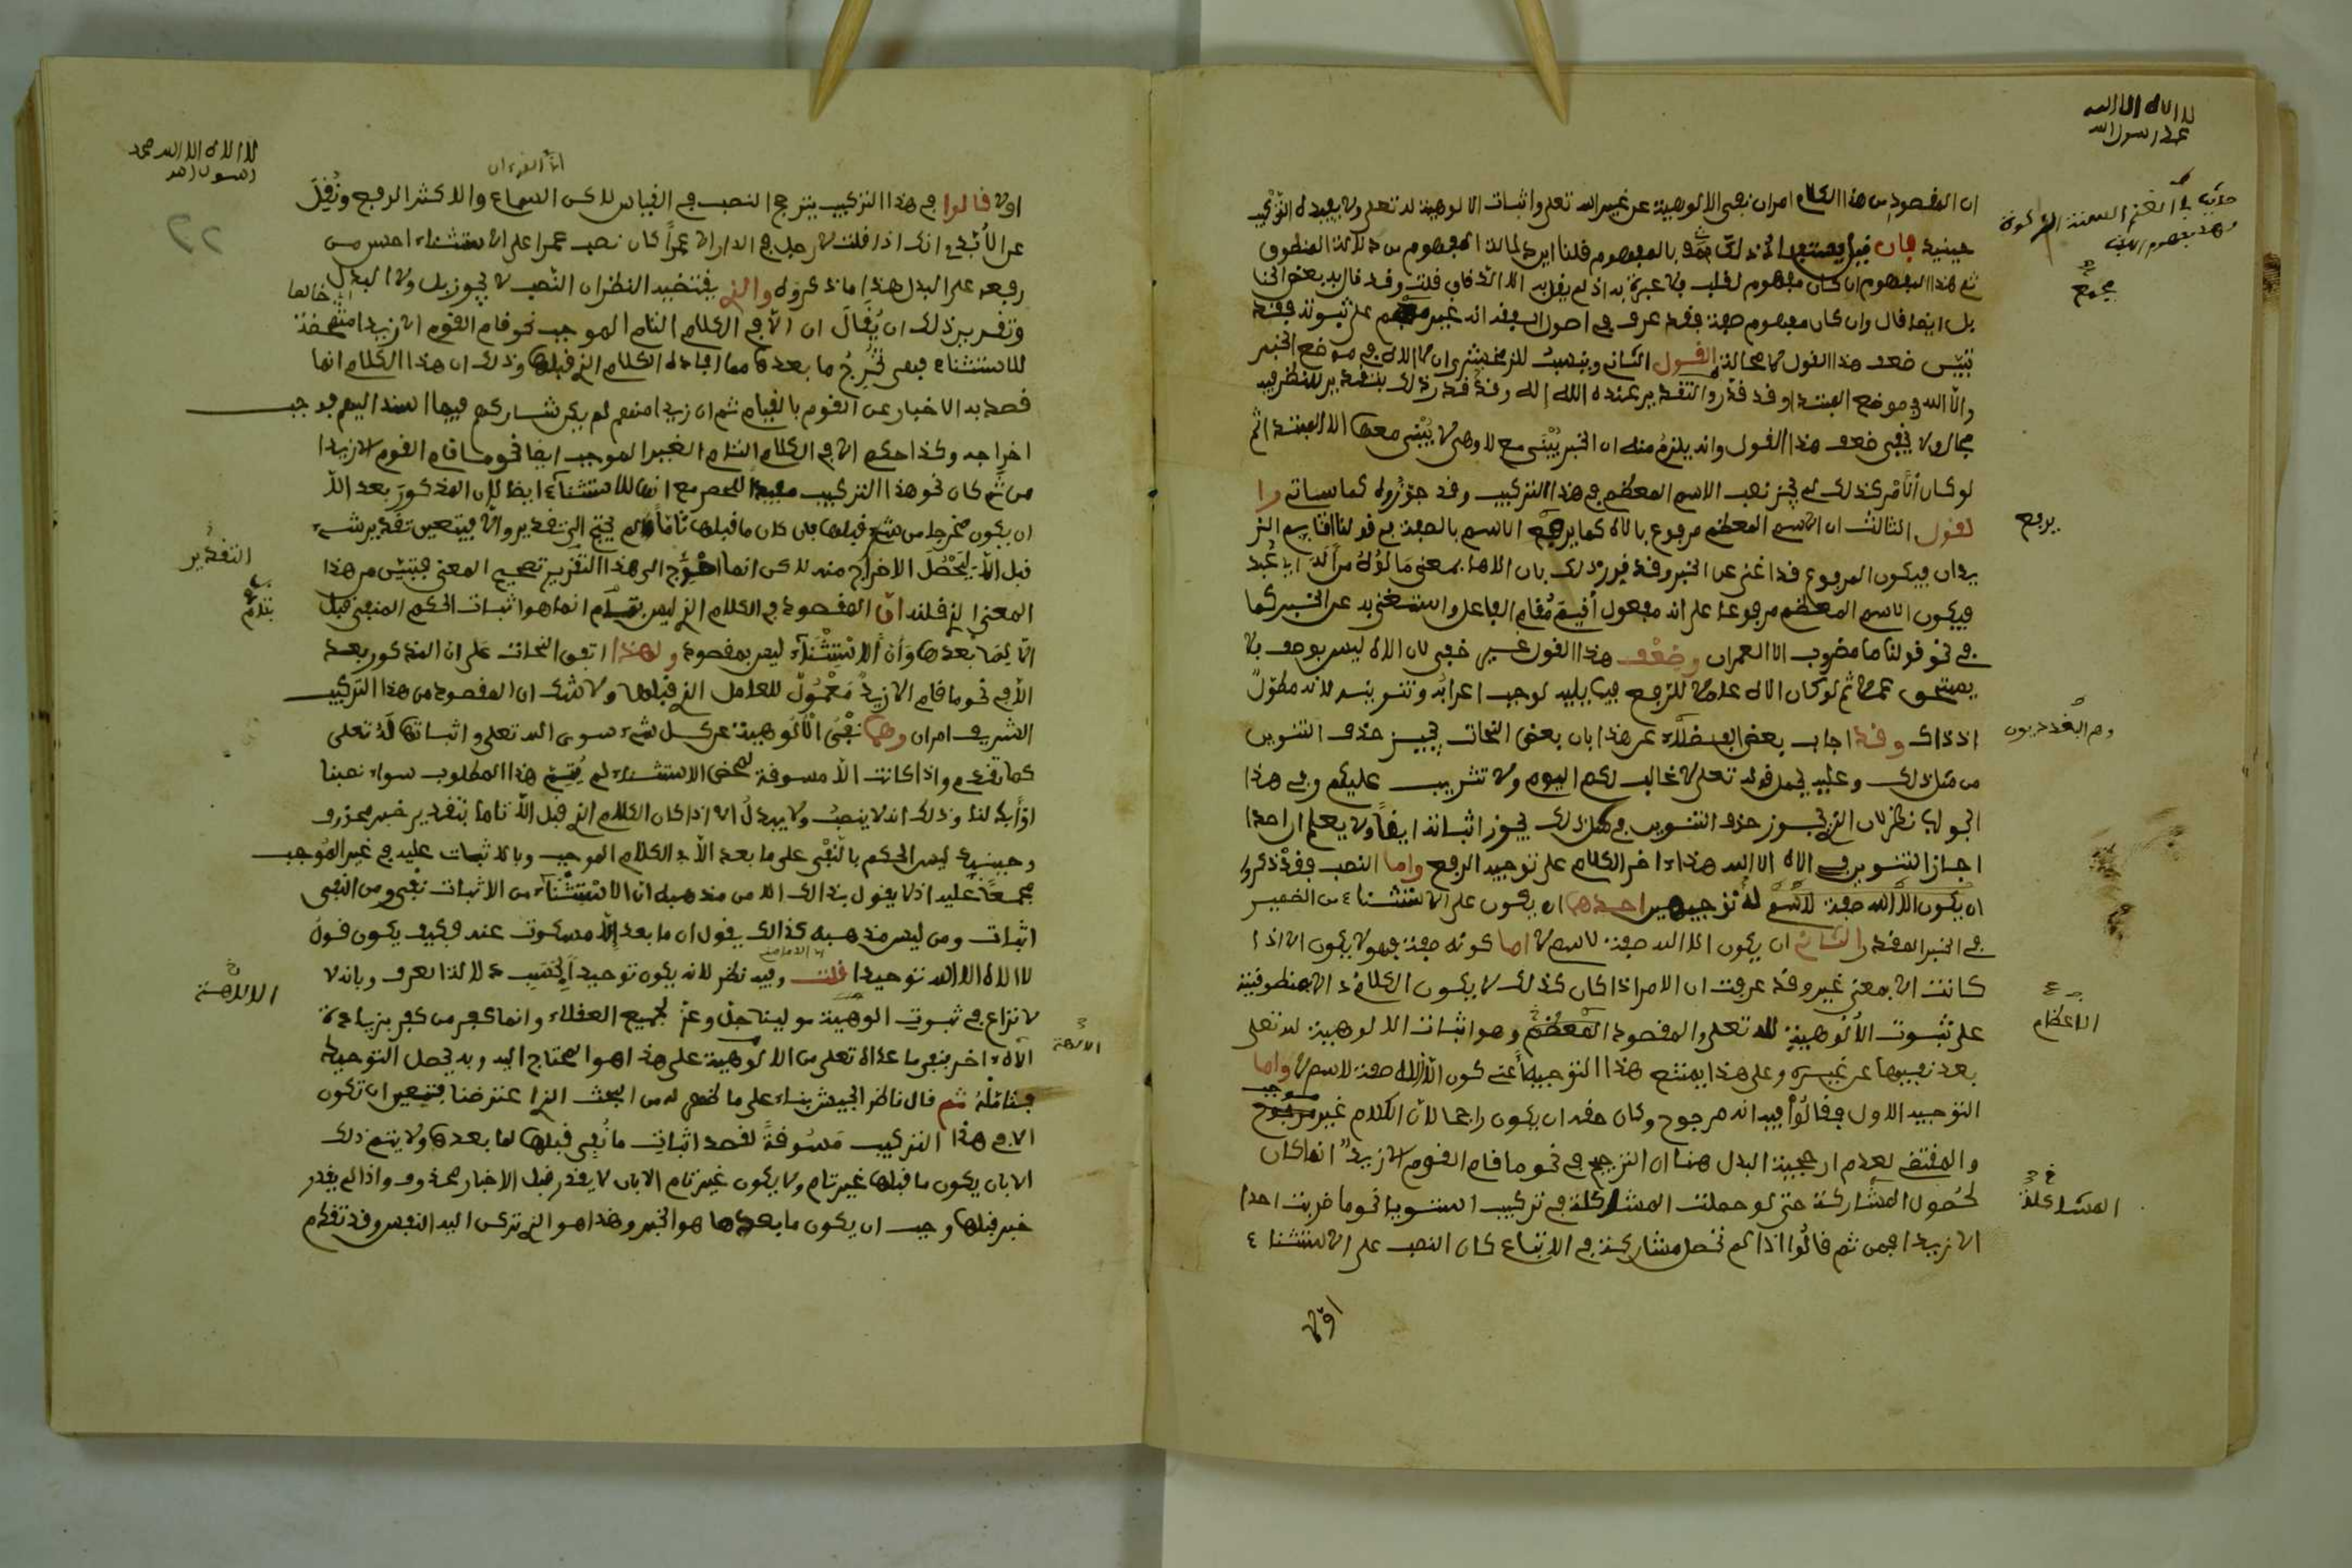 لا اله الا الله
محمد رسول الله
ان المقصود من هذا الكلام امران نفي الالوهية عن غير الله تعلى واثبات الالوهية لله تعلى ولا يفيده التركيب
حينيذ فان قيل يستفاد ذلك بالمفهوم قلنا اين دلالة المفهوم من دلالة المنطوق
ثم هذا المفهوم ان كان مفهوم لقب فلا عبرة به اذ لم يقل به الا الدقاق قلت وقد قال به بعض الحنا
بل ايضا قال وان كان مفهوم صفة فقد عرف في اصول الفقه انه غير مجمع على ثبوته فقد
تبين ضعف هذا القول لا محالة القول الثاني وينسب للزمخشري ان لا اله في موضع الخبر
والا الله في موضع المبتدا وقد قدر والتقدير عنده الله اله وقد قدر ذلك بتقدير للنظر فيه
مجال ولا يخفى ضعف هذا القول وانه يلزم منه ان الخبر يبنى مع لا وهي لا يبنى معها الا المبتدا ثم
لو كان الامر كذلك لم يجز نصب الاسم المعظم في هذا التركيب وقد جوزوه كما سياتي وا
لقول الثالث ان الاسم المعظم مرفوع بالاه كما يرفع الاسم بالصفة في قولنا اقايم الز
يدان فيكون المرفوع قد اغنى عن الخبر وقد قرر ذلك بان الاها بمعنى مالوه من اله اي عبد
فيكون الاسم المعظم مرفوعا على انه مفعول اقيم مقام الفاعل واستغني به عن الخبر كما
في نحو قولنا ما مضروب الا العمران وضعف هذا القول غير خفي لان الاه ليس بوصف فلا
يستحق عملا ثم لو كان الاه عاملا للرفع فيما يليه لوجب اعرابه وتنوينه لانه مطول
اذ ذاك وقد اجاب بعض الفضلاء عن هذا بان بعض النحات يجيز حذف التنوين
من مثل ذلك وعليه يحمل قوله تعلى لا غالب لكم اليوم ولا تثريب عليكم وفي هذا
الجواب نظر لان الذي يجوز حذف التنوين في مثل ذلك يجوز اثباته ايضا ولا يعلم ان احدا
اجاز التنوين في لا اله الا الله هذا اخر الكلام على توجيه الرفع واما النصب فقد ذكروا
له توجيهين احدهما ان يكون على الاستثناء من الضمير
في الخبر المقدر الثاني ان يكون الا الله صفة لاسم لا اما كونه صفة فهو لا يكون الا اذا
كانت الا بمعنى غير وقد عرفت ان الامر اذا كان كذلك لا يكون الكلام دالا بمنطوقه
على ثبوت الالوهية لله تعلى والمقصود المعظم وهو اثبات الالوهية لله تعلى
بعد نفيها عن غيره وعلى هذا يمتنع هذا التوجيه اعني كون الا الله صفة لاسم لا واما
التوجيه الاول فقالوا فيه انه مرجوح وكان حقه ان يكون راجحا لان الكلام غير موجب
والمقتضي لعدم ارجحية البدل هنا ان الترجيح في نحو ما قام القوم الا زيد انما كان
لحصول المشاركة حتى لو حصلت المشاكلة في تركيب استويا نحو ما ضربت احدا
الا زيدا فمن ثم قالوا اذا لم تحصل مشاركة في الاتباع كان النصب على الاستثناء
اولى
يرفع
وهم البغداديون
الاعظم
المشاكلة
لا اله الا الله محمد
رسول الله
٢٢
اولى قالوا في هذا التركيب يترجح النصب في القياس لاكن السماع والاكثر الرفع ونقل
عن الابذي انك اذا قلت لا رجل في الدار الا عمرا كان نصب عمرا على الاستثناء احسن من
رفعه على البدل هذا ما ذكروه والذي يقتضيه النظر ان النصب لا يجوز بل ولا البدل
وتقرير ذلك ان يقال ان الا في الكلام التام الموجب نحو قام القوم الا زيدا متمحضة
للاستثناء فهي تخرج ما بعدها مما افاده الكلام الذي قبلها وذلك ان هذا الكلام انما
قصد به الاخبار عن القوم بالقيام ثم ان زيدا منهم لم يكن شاركهم فيما اسند اليهم فوجب
اخراجه وكذا حكم الا في الكلام التام الغير الموجب ايضا نحو ما قام القوم الا زيدا
من ثم كان نحو هذا التركيب مفيدا للحصر مع انها للاستثناء ايضا لان المذكور بعد الا
ان يكون مخرجا من شيء قبلها فان كان ما قبلها تاما لم يحتج الى تقدير والا فيتعين تقدير شيء
قبل الا ليحصل الاخراج منه لاكن انما احوج الى هذا التقدير تصحيح المعنى فتبين من هذا
المعنى الذي قلنه ان المقصود في الكلام الذي ليس بتام انما هو اثبات الحكم المنفي قبل
الا لما بعدها وان الاستثناء ليس بمقصود ولهذا اتفق النحات على ان المذكور بعد
الا في نحو ما قام الا زيد معمول للعامل الذي قبلها ولا شك ان المقصود من هذا التركيب
الشريف امران وهما نفي الالوهية عن كل شيء سوى الله تعلى واثباتها له تعلى
كما تقدم واذا كانت الا مسوقة لمحض الاستثناء لم يتم هذا المطلوب سواء نصبنا
او ابدلنا وذلك انه لا ينصب ولا يبدل الا اذا كان الكلام الذي قبل الا تاما بتقدير خبر محذوف
وحينيذ ليس الحكم بالنفي على ما بعد الا في الكلام الموجب وبالاثبات عليه في غير الموجب
مجمعا عليه اذ لا يقول بذالك الا من مذهبه ان الاستثناء من الاثبات نفي ومن النفي
اثبات ومن ليس مذهبه كذالك يقول ان ما بعد الا مسكوت عنه فكيف يكون قول
لا اله الا الله توحيدا قلت وفيه نظر لانه يكون توحيدا بحسب دلالة العرف وبانه لا
نزاع في ثبوت الوهية مولينا جل وعز لجميع العقلاء وانما كفر من كفر بزيادة
الاه اخر فنفي ما عداه تعلى من الالوهية على هذا هو المحتاج اليه وبه يحصل التوحيد
فتامله ثم قال ناظر الجيش بناء على ما لخص له من البحث الذي اعترضنا فتعين ان تكون
الا في هذا التركيب مسوقة لقصد اثبات ما نفي قبلها لما بعدها ولا يتم ذلك
الا بان يكون ما قبلها غير تام ولا يكون غير تام الا بان لا يقدر قبل الا خبر محذوف واذا لم يقدر
خبر قبلها وجب ان يكون ما بعدها هو الخبر وهذا هو الذي تركن اليه النفس وقد تقدم
التقدير
الالهة